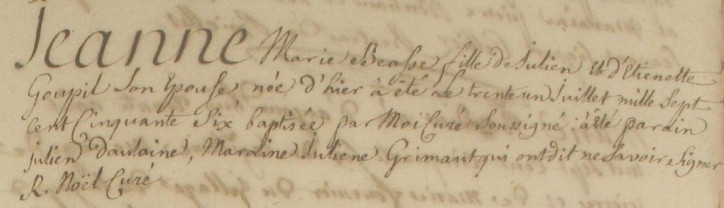 Jeanne Marie Beasse, fille de Julien et d'Etienette
Goupil Son Epouse, née d'hier à été ce trente un Juillet mille Sept
cent Cinquante Six baptisée, par Moi Curé Soussigné : a été parain
julien Daulaine, Maraine Juliene Grimaut qui ont dit ne Savoir Signer
R. Noël Curé